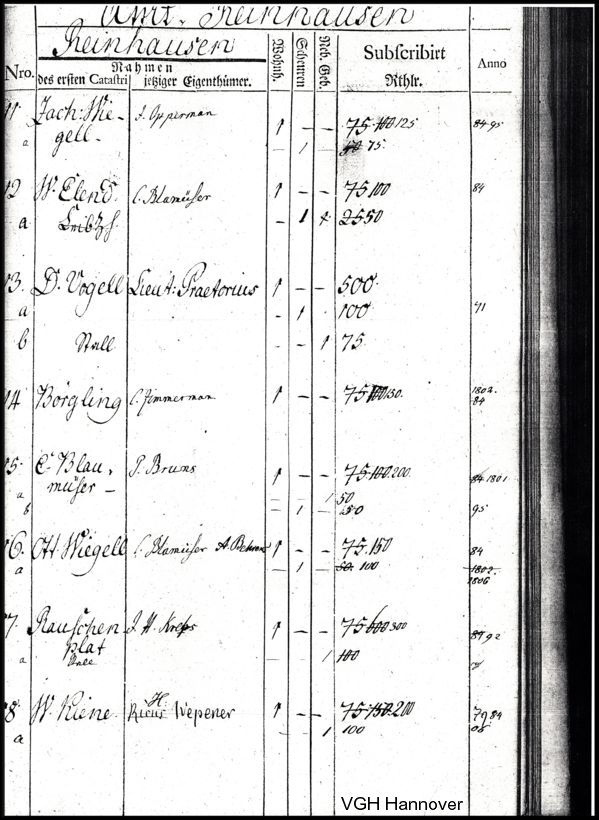 Amt. Reinhausen
Reinhausen
Nro. Nahmen des ersten Catastri jetziger Eigenthümer. Wohnh. Scheuren Neb. Geb. Subscribirt Rthlr. Anno
11 Zach: Wie- J. Opperman 1 - - 75. 100 125 84 95
a gell. - 1 50 75
12 W. Elend C. Blamüser 1 - - 75 100 84
a - 1 25 50
13. D. Vogell Lieut: Praetorius 1 - - 500.
a - 1 100 71
b Stall - - 1 75
14 Börgling C. Zimmerman 1 - - 75 100 130. 1802.
84
15. C. Blau- P. Bruns 1 - - 75. 100. 200. 84 1801
a müser - - - 1 50
b - 1 250 95
16. Ott Wiegell C. Blamüser A. Behrens 1 - - 75. 150 84
a - 1 50. 100 1802.
1806
17. Rauschen J. H. Kreps 1 - - 75 300 89 92
plat
a - - 1 100
18. W. Kiene H. Wepener 1 - - 75. 150. 200 79 84
a - - 1 100
VGH Hannover